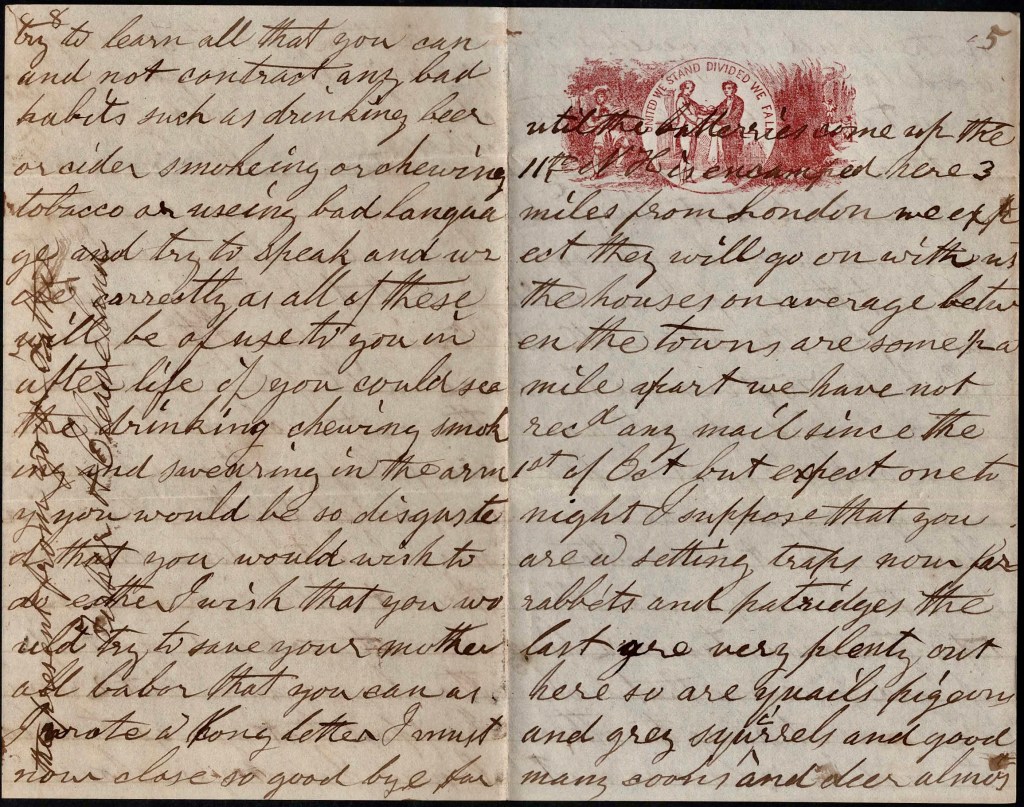 8 8
try to learn all that you can
and not contract any bad
habits such as drinking beer
or cider smokeing or chewing
tobacco or useing bad langua
ge and try to speak and wr
ite correctly as all of these
will be of use to you in
after life if you could see
the drinking chewing smok
ing and swearing in the arm
y you would be so disguste
d that you would wish to
do either I wish that you wo
uld try to save your mother
all labor that you can as
I wrote a long letter I must
now close so good bye for
the present from your brother
5
UNITED WE STAND DIVIDED WE FALL
util the batterries come up the
11th N H is encamped here 3
miles from London we exp
ect they will go on with us
the houses on average betw
en the towns are some ½ a
mile apart we have not
recd any mail since the
1st of Oct but expect one to
night I suppose that you
are a setting traps now for
rabbits and patridges the
last are very plenty out
here so are quails pigeons
and grey squirrels and good
many coons and deer almos